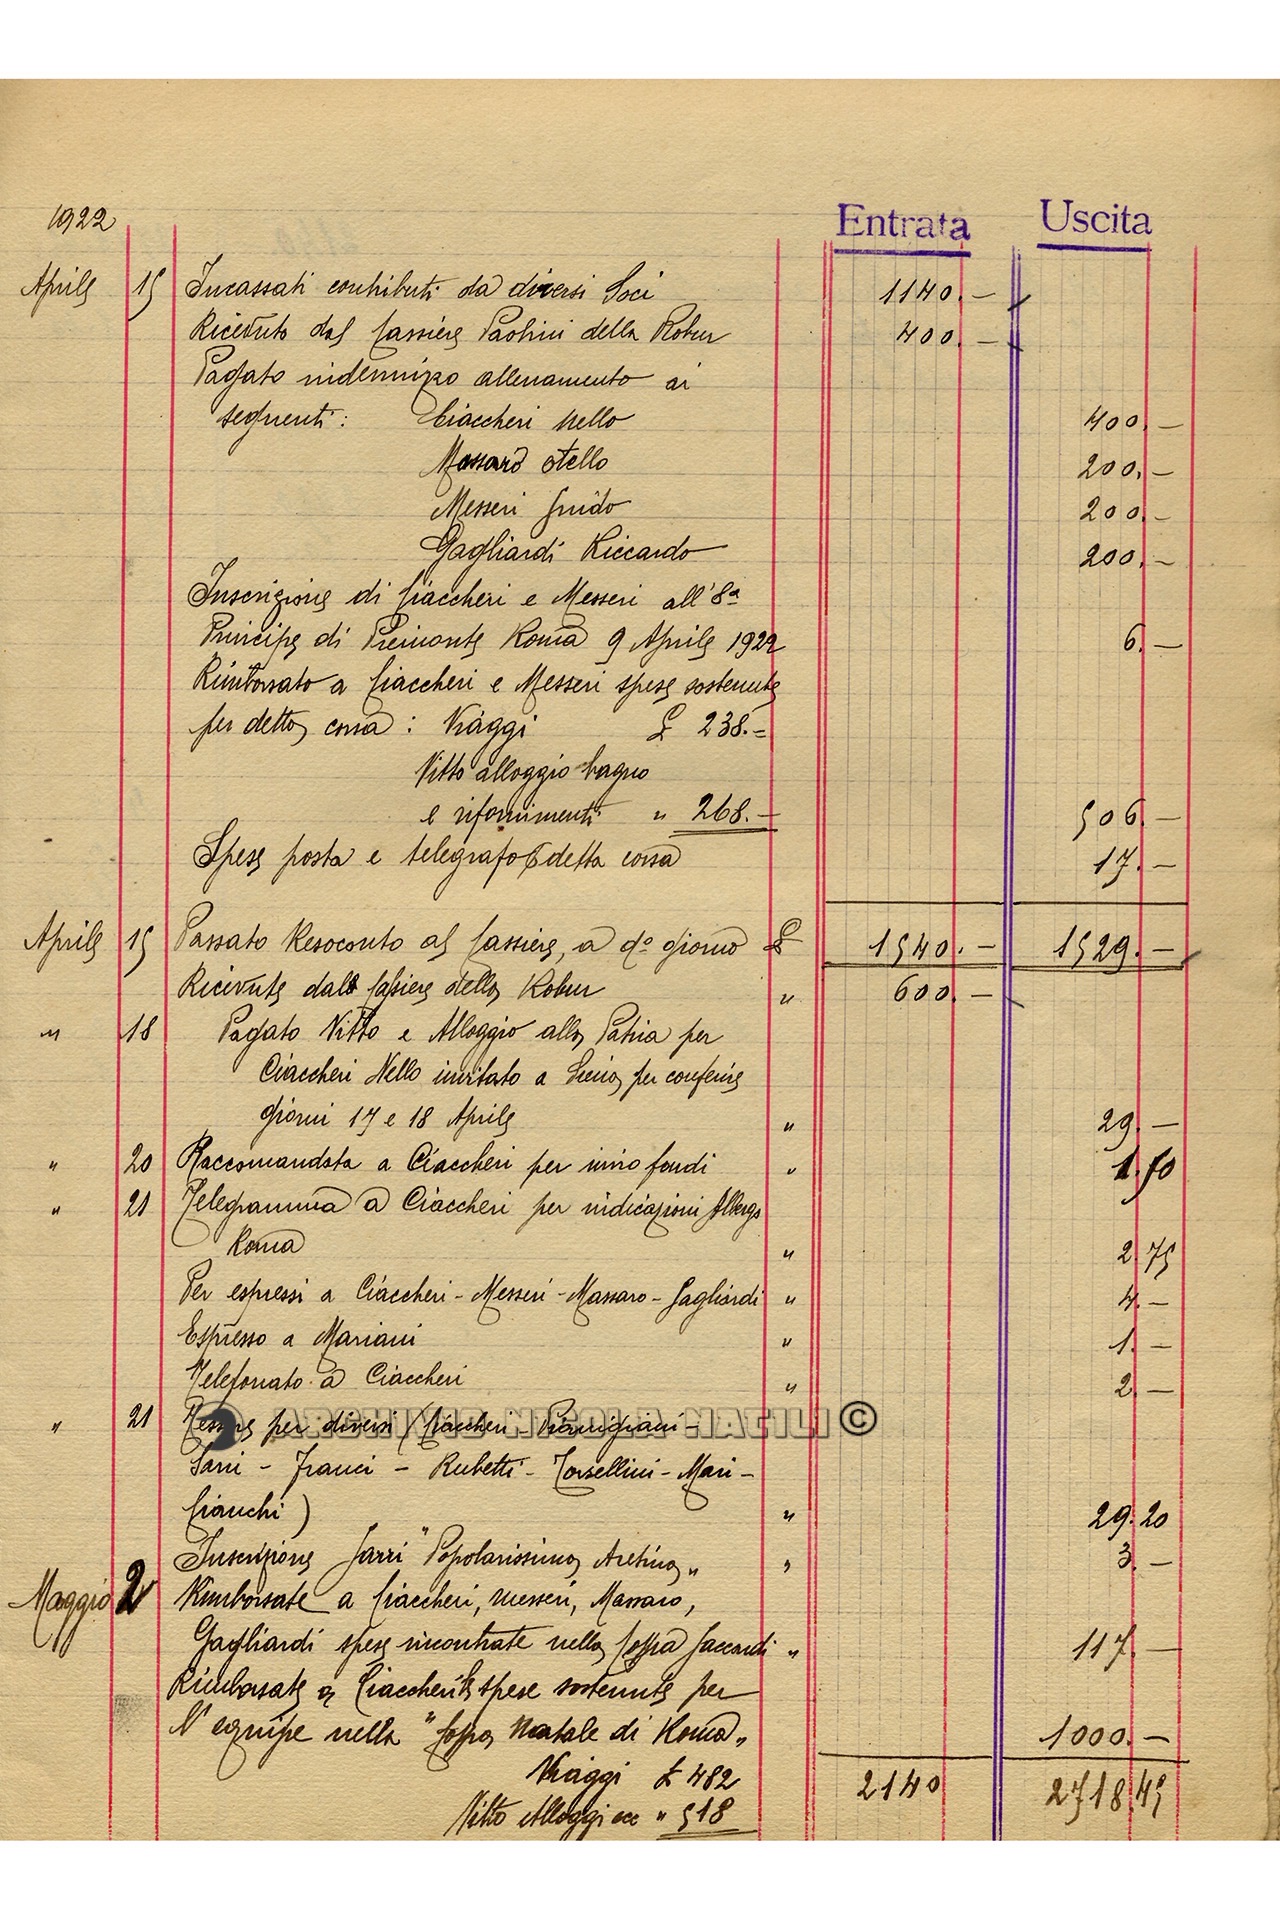 1922
Entrata Uscita
Aprile 15 Incassati contributi da diversi Soci 1140.-
Ricevuto dal Cassiere Paolini della Robur 400.-
Pagato indennizzo allenamento ai
seguenti: Ciaccheri Nello 400.-
Massaro Otello 200.-
Messeri Guido 200.-
Gagliardi Riccardo 200.-
Inscrizione di Ciaccheri e Messeri all'8a
Principe di Piemonte Roma 9 Aprile 1922 6.-
Rimborsato a Ciaccheri e Messeri spese sostenute
per detta corsa: Viaggi £ 238.=
Vitto alloggio bagno
e rifornimenti " 268.- 506.-
Spese posta e telegrafo detta corsa 17.-
Aprile 15 Passato Resoconto al Cassiere, a do giorno £ 1540.- 1529.-
Ricevute dal Cassiere della Robur " 600.-
" 18 Pagato Vitto e Alloggio alla Patria per
Ciaccheri Nello invitato a Siena per conferire
giorni 17 e 18 Aprile " 29.-
" 20 Raccomandata a Ciaccheri per invio fondi " 1.50
" 21 Telegramma a Ciaccheri per indicazioni Albergo
Roma " 2.75
Per espressi a Ciaccheri - Messeri - Massaro - Gagliardi " 4.-
Espresso a Mariani " 1.-
Telefonato a Ciaccheri " 2.-
" 21 Tessere per diversi (Ciaccheri Pianigiani -
ARCHIVIO NICOLA NATILI ©
Sani - Franci - Rubetti - Torsellini - Mari -
Cianchi) " 29.20
Inscrizione Sarri "Popolarissima Aretina" " 3.-
Maggio 2 Rimborsate a Ciaccheri, Messeri, Massaro,
Gagliardi spese incontrate nella Coppa Zaccardi " 117.-
Rimborsate a Ciaccheri le spese sostenute per
l'equipe nella "Coppa Natale di Roma" 1000.-
Viaggi £ 482 2140 2718.45
Vitto Alloggi ecc " 518